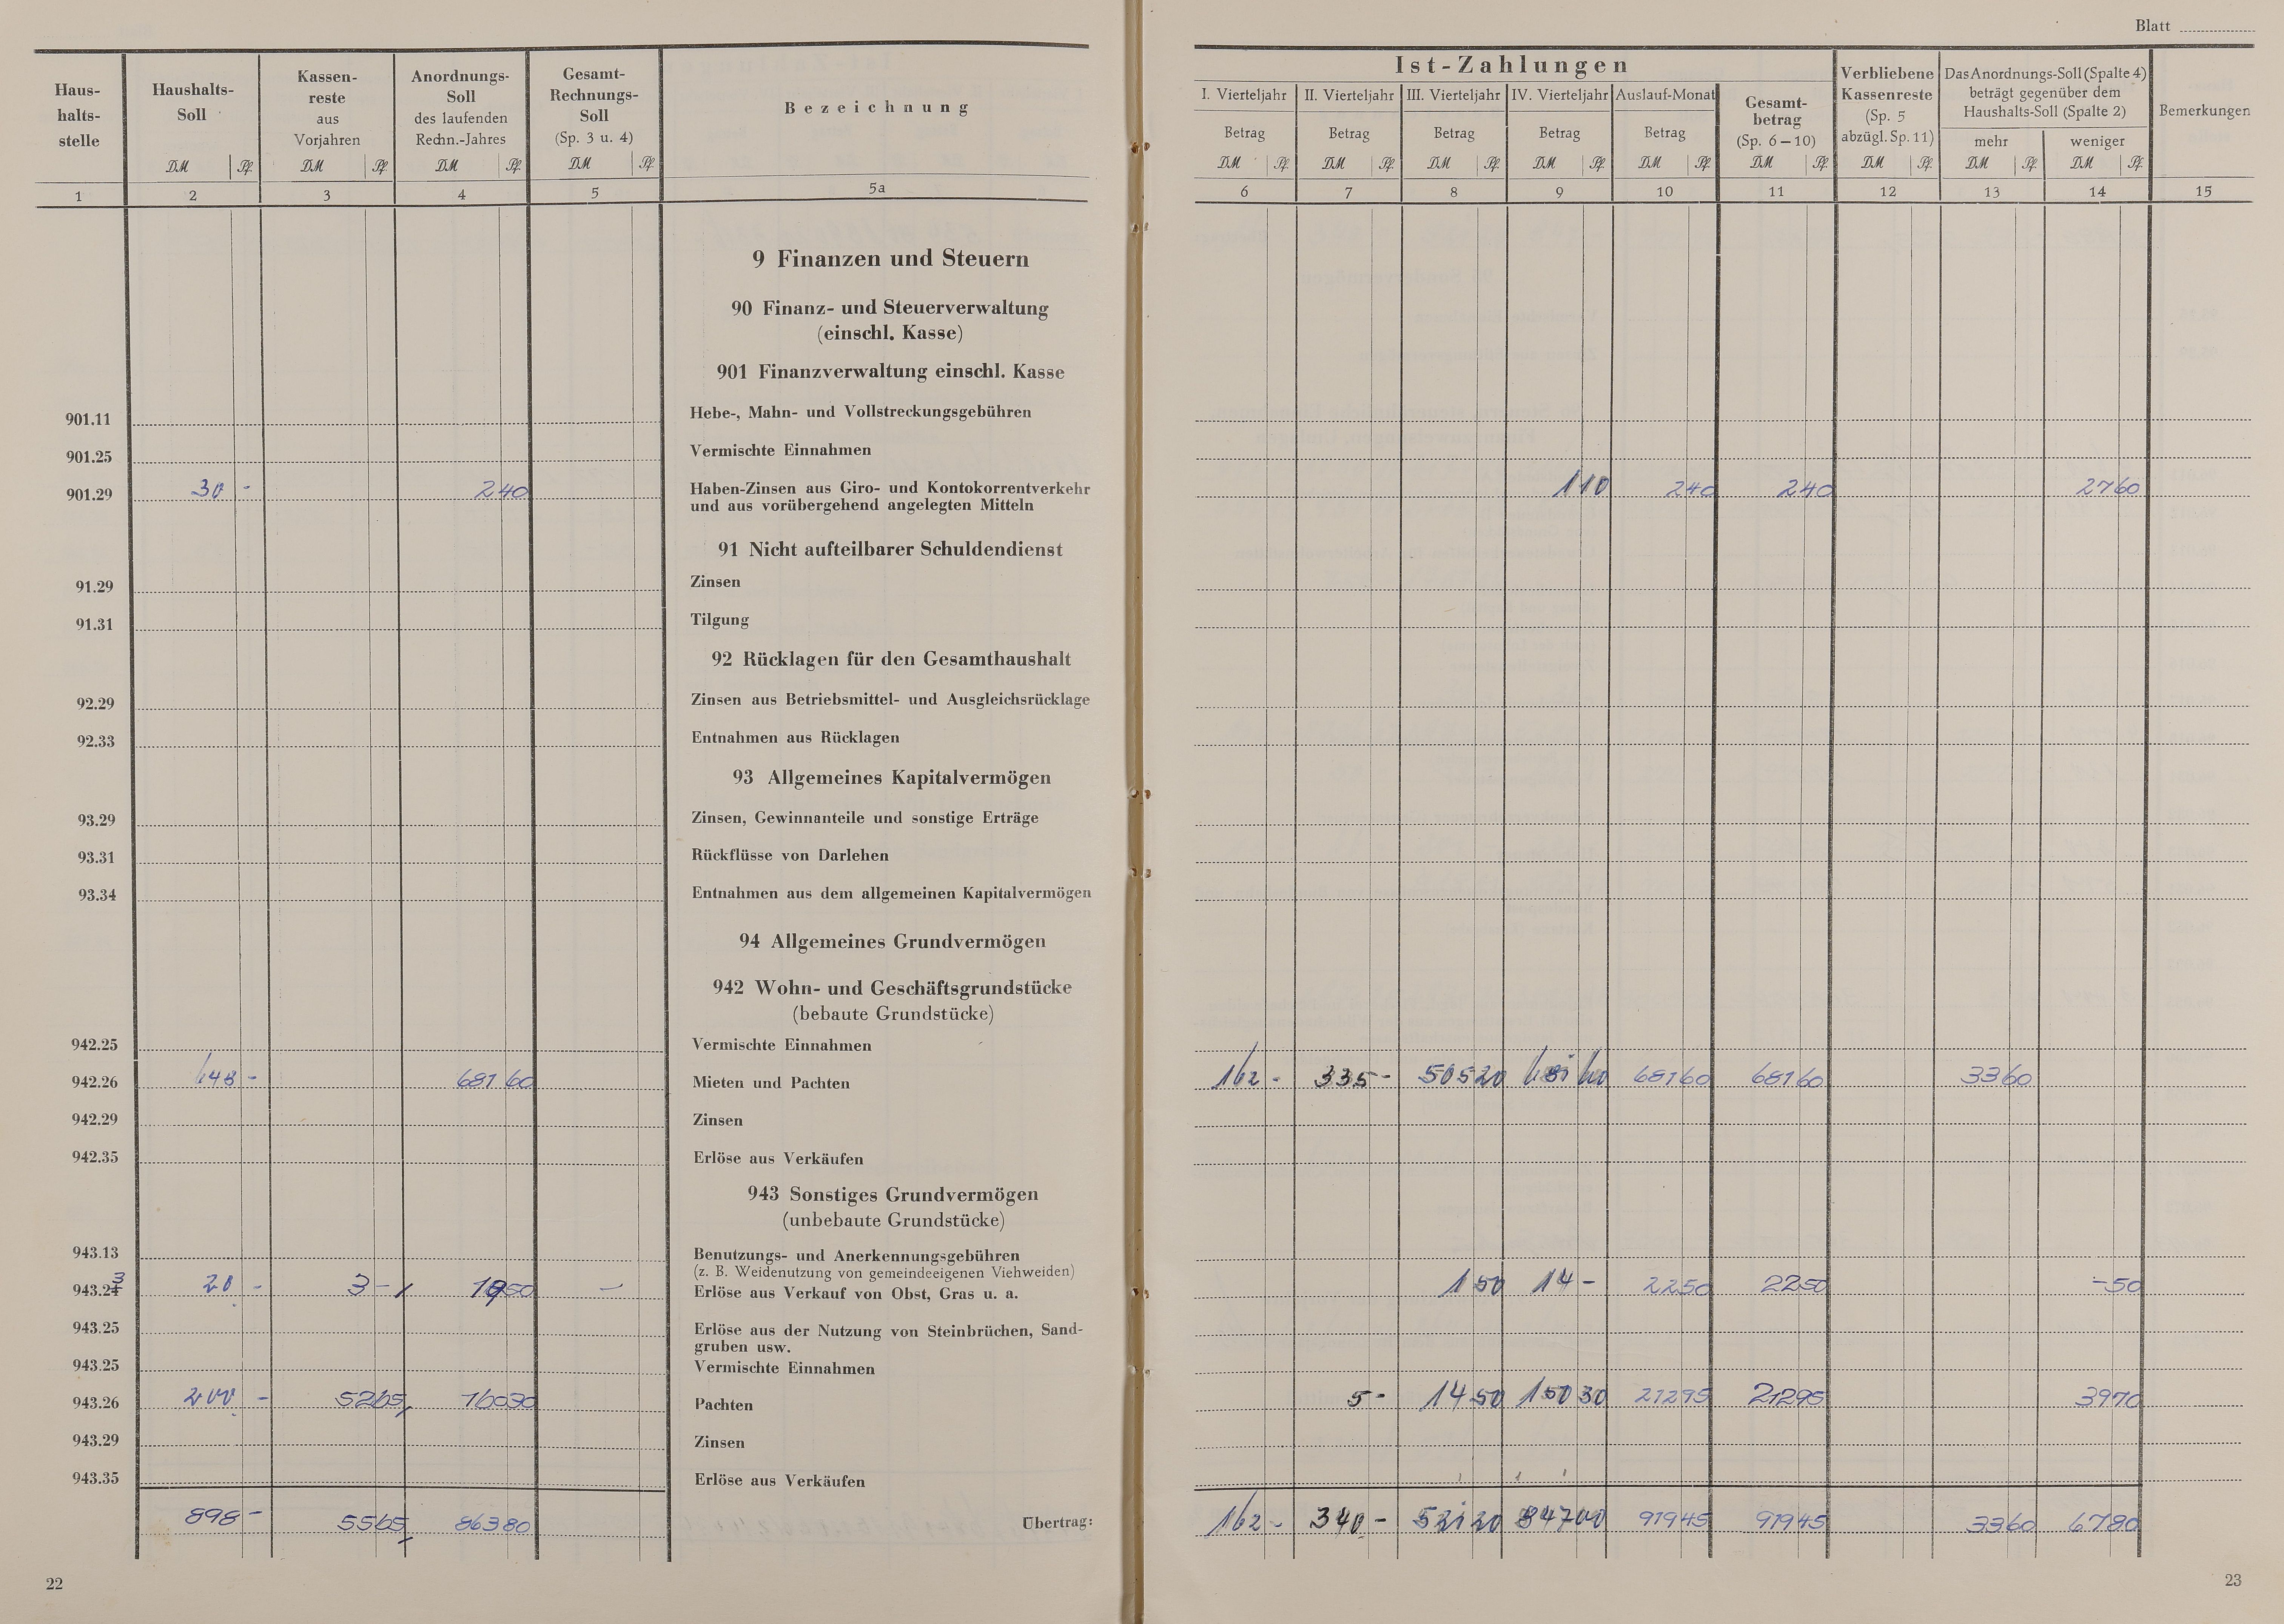 Blatt
Haus-
halts-
stelle
Haushalts-
Soll
DM Pf.
Kassen-
reste
aus
Vorjahren
DM Pf.
Anordnungs-
Soll
des laufenden
Rechn.-Jahres
DM Pf.
Gesamt-
Rechnungs-
Soll
(Sp. 3 u. 4)
DM Pf.
Bezeichnung
Ist-Zahlungen
I. Vierteljahr
Betrag
DM Pf.
II. Vierteljahr
Betrag
DM Pf.
III. Vierteljahr
Betrag
DM Pf.
IV. Vierteljahr
Betrag
DM Pf.
Auslauf-Monat
Betrag
DM Pf.
Gesamt-
betrag
(Sp. 6–10)
DM Pf.
Verbliebene
Kassenreste
(Sp. 5
abzügl. Sp. 11)
DM Pf.
Das Anordnungs-Soll (Spalte 4)
beträgt gegenüber dem
Haushalts-Soll (Spalte 2)
mehr weniger
DM Pf. DM Pf.
Bemerkungen
1 2 3 4 5 5a 6 7 8 9 10 11 12 13 14 15
9 Finanzen und Steuern
90 Finanz- und Steuerverwaltung
(einschl. Kasse)
901 Finanzverwaltung einschl. Kasse
901.11 Hebe-, Mahn- und Vollstreckungsgebühren
901.25 Vermischte Einnahmen
901.29 30 - 2 40 Haben-Zinsen aus Giro- und Kontokorrentverkehr 1 10 2 40 2 40 27 60
und aus vorübergehend angelegten Mitteln
91 Nicht aufteilbarer Schuldendienst
91.29 Zinsen
91.31 Tilgung
92 Rücklagen für den Gesamthaushalt
92.29 Zinsen aus Betriebsmittel- und Ausgleichsrücklage
92.33 Entnahmen aus Rücklagen
93 Allgemeines Kapitalvermögen
93.29 Zinsen, Gewinnanteile und sonstige Erträge
93.31 Rückflüsse von Darlehen
93.34 Entnahmen aus dem allgemeinen Kapitalvermögen
94 Allgemeines Grundvermögen
942 Wohn- und Geschäftsgrundstücke
(bebaute Grundstücke)
942.25 Vermischte Einnahmen
942.26 648 - 681 60 Mieten und Pachten 162 - 335 - 505 20 681 60 681 60 681 60 33 60
942.29 Zinsen
942.35 Erlöse aus Verkäufen
943 Sonstiges Grundvermögen
(unbebaute Grundstücke)
943.13 Benutzungs- und Anerkennungsgebühren
(z. B. Weidenutzung von gemeindeeigenen Viehweiden)
943.23 20 - 3 - 19 50 - Erlöse aus Verkauf von Obst, Gras u. a. 1 50 14 - 22 50 22 50 - 50
943.25 Erlöse aus der Nutzung von Steinbrüchen, Sand-
gruben usw.
943.25 Vermischte Einnahmen
943.26 200 - 52 65 160 30 Pachten 5 - 14 50 150 30 212 95 212 95 39 70
943.29 Zinsen
943.35 Erlöse aus Verkäufen
898 - 55 65 863 80 Übertrag: 162 - 340 - 521 20 847 00 919 45 919 45 33 60 67 80
22
23